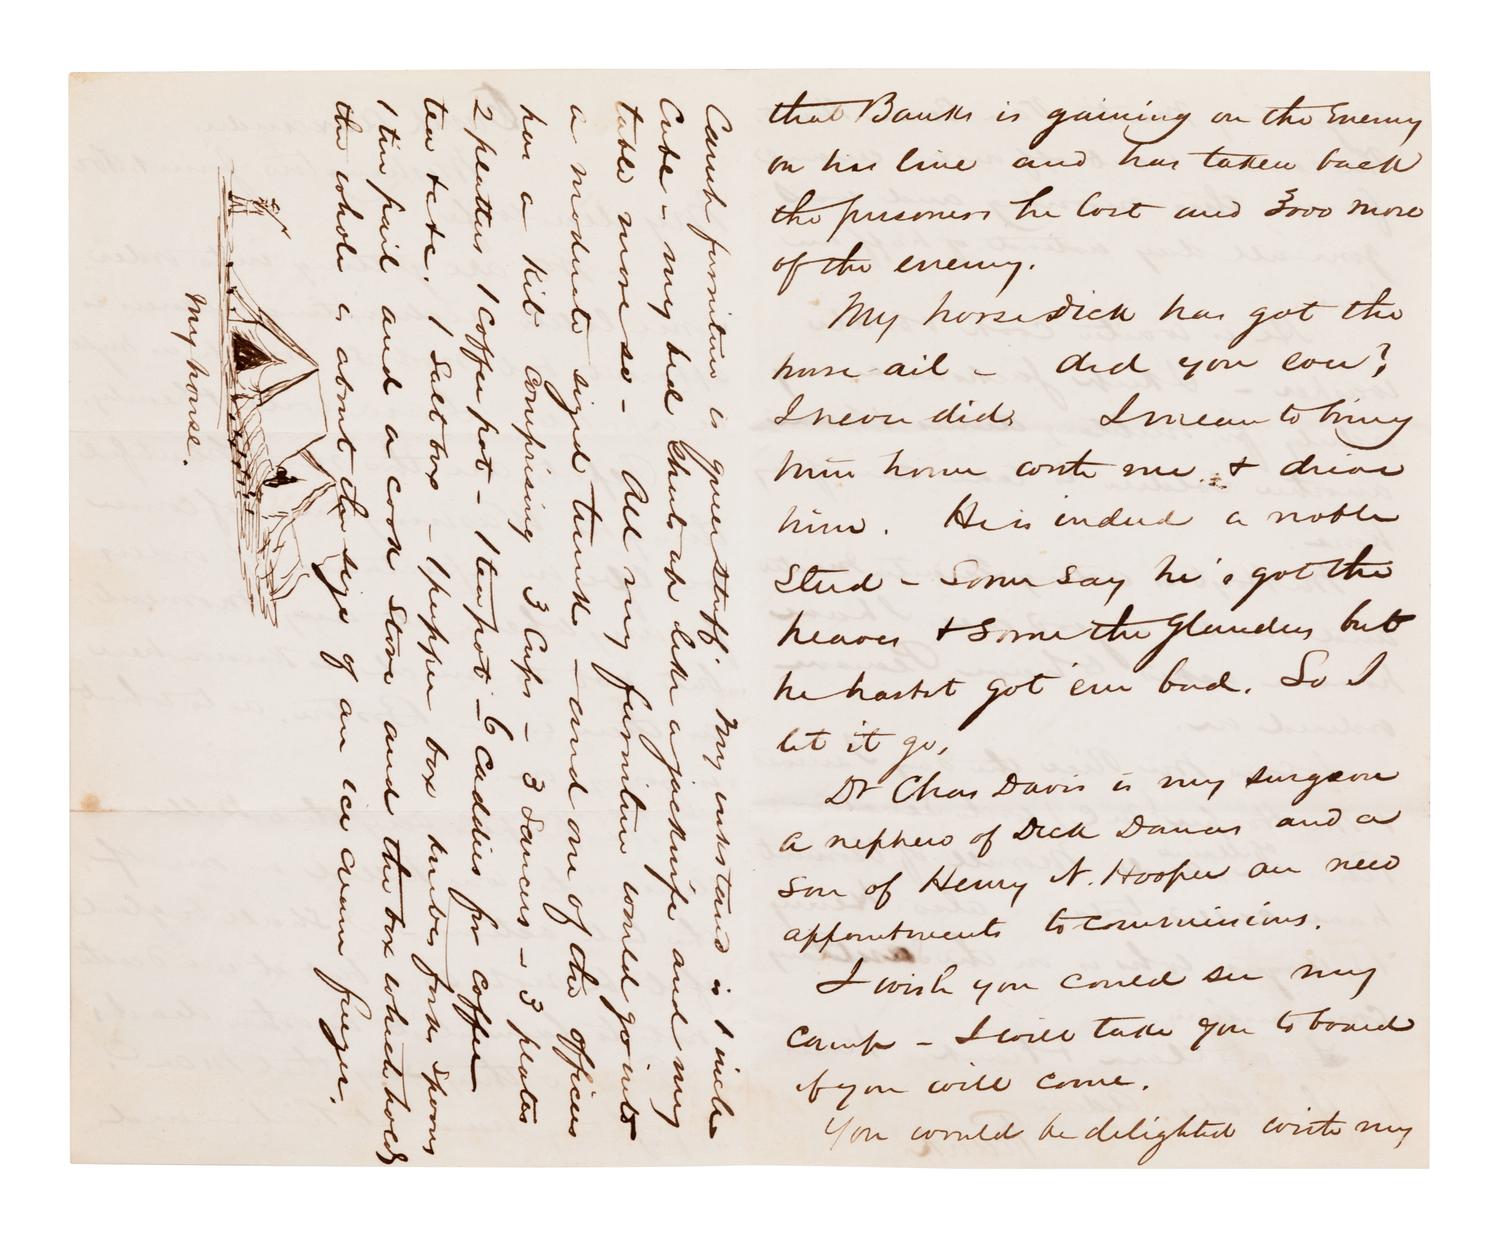 that Banks is gaining on the Enemy
on his line and has taken back
the prisoners he lost and 3000 more
of the enemy.
My horse Dick has got the
horse ail - did you ever?
I never did. I mean to bring
him home with me & drive
him. He is indeed a noble
Steed - Some say he's got the
heaves & some the Glanders but
he hasnt got 'em bad. So I
let it go,
Dr Chas Davis is my surgeon
a nephew of Dick Danas and a
son of Henry N. Hooper are new
appointments to commissions.
I wish you could see my
Camp - I will take you to board
if you will come.
You would be delighted with my
Camp furniture is queer stuff. My inkstand is 1 inch
Cube - my bed shuts up like a jacknife and my
table more so - All my furniture would go into
a moderate sized trunk - and one of the officers
has a Kit comprising 3 Cups - 3 Saucers - 3 plates
2 platters 1 Coffee pot - 1 teapot - 6 Caddies for coffee
tea &c&c. 1 Salt box - 1 pepper box knives forks spoons
1 tin pail and a cook Stove and the box which holds
the whole is about the size of an ice cream freezer.
My house.